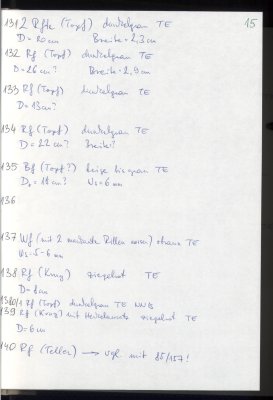 15
131 2 Rfte (Topf) dunkelgrau TE
D = 20cm Breite = 2,3cm
132 Rf (Topf) dunkelgrau TE
D = 26cm? Breite = 2,9cm
133 Rf (Topf) dunkelgrau TE
D = 13cm?
134 Rf (Topf) dunkelgrau TE
D = 22cm? Breite?
135 Bf (Topf?) beige bis grau TE
D₂ = 11cm? Ws = 6mm
136
137 Wf (mit 2 Rillen aussen) TE
Ws = 5-6mm
138 Rf (Krug) ziegelrot TE
D = 8cm
Rf (Topf) dunkelgrau TE
139 Rf (Krug) mit Henkelansatz ziegelrot TE
D = 6cm
140 Rf (Teller) → vgl. mit 85/157!